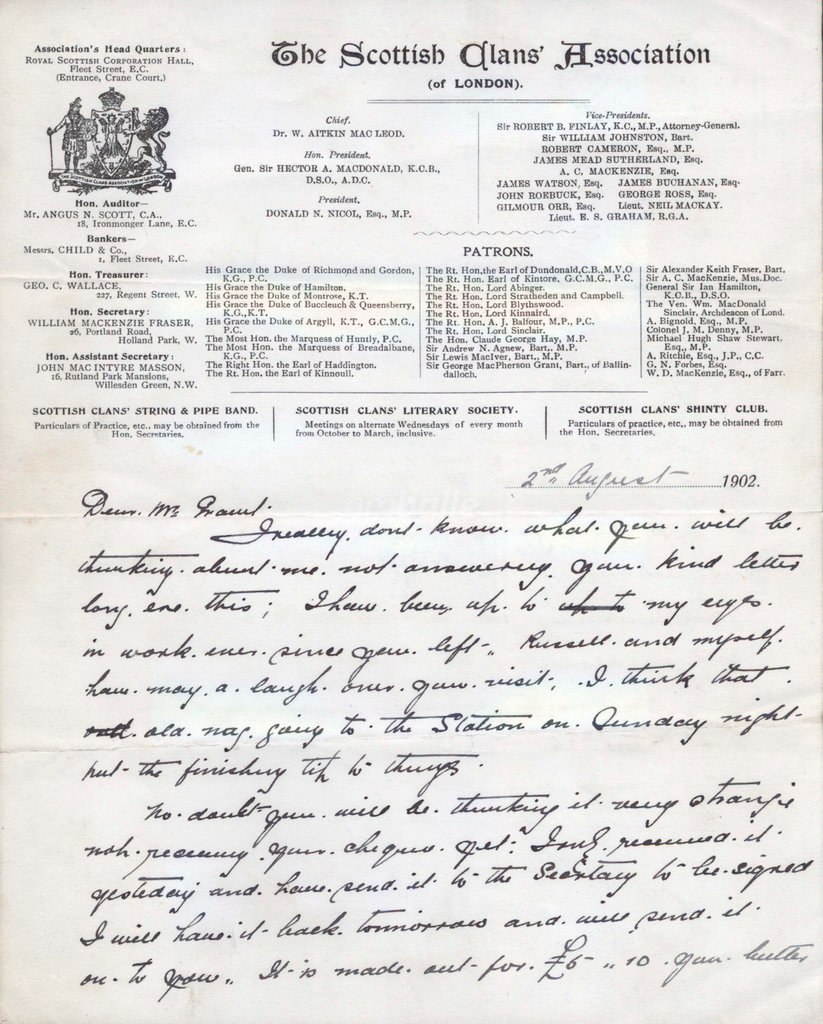 Association's Head Quarters:
ROYAL SCOTTISH CORPORATION HALL,
Fleet Street, E.C.
(Entrance, Crane Court.)
The Scottish Clans' Association
(of LONDON).
THE SCOTTISH CLANS ASSOCIATION OF LONDON
Hon. Auditor—
Mr. ANGUS N. SCOTT, C.A.,
18, Ironmonger Lane, E.C.
Bankers—
Messrs. CHILD & Co.,
1, Fleet Street, E.C.
Hon. Treasurer:
GEO. C. WALLACE,
227, Regent Street, W.
Hon. Secretary:
WILLIAM MACKENZIE FRASER,
26, Portland Road,
Holland Park, W.
Hon. Assistant Secretary:
JOHN MAC INTYRE MASSON,
16, Rutland Park Mansions,
Willesden Green, N.W.
Chief.
Dr. W. AITKIN MAC LEOD.
Hon. President.
Gen. Sir HECTOR A. MACDONALD, K.C.B.,
D.S.O., A.D.C.
President.
DONALD N. NICOL, Esq., M.P.
Vice-Presidents.
Sir ROBERT B. FINLAY, K.C., M.P., Attorney-General.
Sir WILLIAM JOHNSTON, Bart.
ROBERT CAMERON, Esq., M.P.
JAMES MEAD SUTHERLAND, Esq.
A. C. MACKENZIE, Esq.
JAMES WATSON, Esq. JAMES BUCHANAN, Esq.
JOHN ROEBUCK, Esq. GEORGE ROSS, Esq.
GILMOUR ORR, Esq. Lieut. NEIL MACKAY.
Lieut. E. S. GRAHAM, R.G.A.
PATRONS.
His Grace the Duke of Richmond and Gordon,
K.G., P.C.
His Grace the Duke of Hamilton.
His Grace the Duke of Montrose, K.T.
His Grace the Duke of Buccleuch & Queensberry,
K.G., K.T.
His Grace the Duke of Argyll, K.T., G.C.M.G.,
P.C.
The Most Hon. the Marquess of Huntly, P.C.
The Most Hon. the Marquess of Breadalbane,
K.G., P.C.
The Right Hon. the Earl of Haddington.
The Rt. Hon. the Earl of Kinnoull.
The Rt. Hon. the Earl of Dundonald, C.B., M.V.O
The Rt. Hon. Earl of Kintore, G.C.M.G., P.C.
The Rt. Hon. Lord Abinger.
The Rt. Hon. Lord Stratheden and Campbell.
The Rt. Hon. Lord Blythswood.
The Rt. Hon. Lord Kinnaird.
The Rt. Hon. A. J. Balfour, M.P., P.C.
The Rt. Hon. Lord Sinclair.
The Hon. Claude George Hay, M.P.
Sir Andrew N. Agnew, Bart., M.P.
Sir Lewis MacIver, Bart., M.P.
Sir George MacPherson Grant, Bart., of Ballin-
dalloch.
Sir Alexander Keith Fraser, Bart.
Sir A. C. MacKenzie, Mus.Doc.
General Sir Ian Hamilton,
K.C.B., D.S.O.
The Ven. Wm. MacDonald
Sinclair, Archdeacon of Lond.
A. Bignold, Esq., M.P.
Colonel J. M. Denny, M.P.
Michael Hugh Shaw Stewart,
Esq., M.P.
A. Ritchie, Esq., J.P., C.C.
G. N. Forbes, Esq.
W. D. MacKenzie, Esq., of Farr.
SCOTTISH CLANS' STRING & PIPE BAND.
Particulars of Practice, etc., may be obtained from the
Hon. Secretaries.
SCOTTISH CLANS' LITERARY SOCIETY.
Meetings on alternate Wednesdays of every month
from October to March, inclusive.
SCOTTISH CLANS' SHINTY CLUB.
Particulars of practice, etc., may be obtained from
the Hon. Secretaries.
2nd August 1902.
Dear Mr. Grant.
I really dont know what you will be
thinking about me not answering your kind letter
long ere this; I have been up to up to my eyes
in work ever since you left. Russell and myself
have may a laugh over your visit, I think that
old nag going to the Station on Sunday night
put the finishing tip to things.
No doubt you will be thinking it very strange
not receiving your cheque yet. I only received it
yesteday and have send it to the Secretary to be signed
I will have it back tomorrow and will send it
on to you. It is made out for £5 " 10 your better